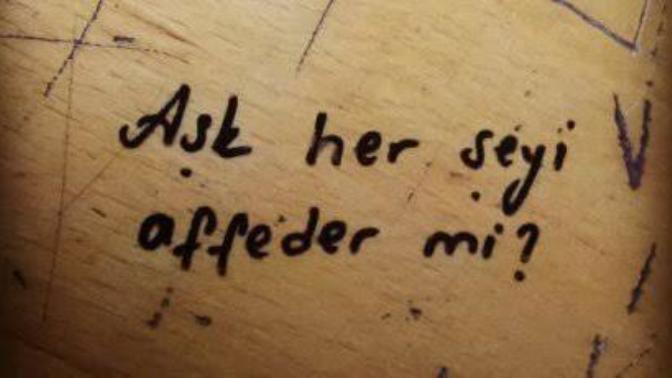 Aşk her şeyi
affeder mi?